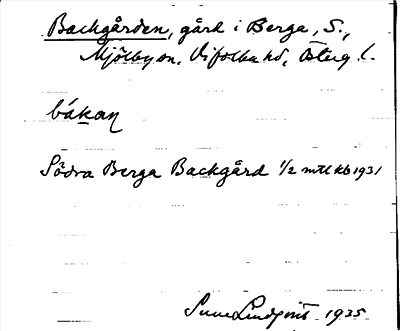 Backgården, gård i Berga, S.,
Mjölby sn, Vifolka hd, Österg. l.
bákan
Södra Berga Backgård 1/2 mtl kb 1931
Sune Lindqvist 1935